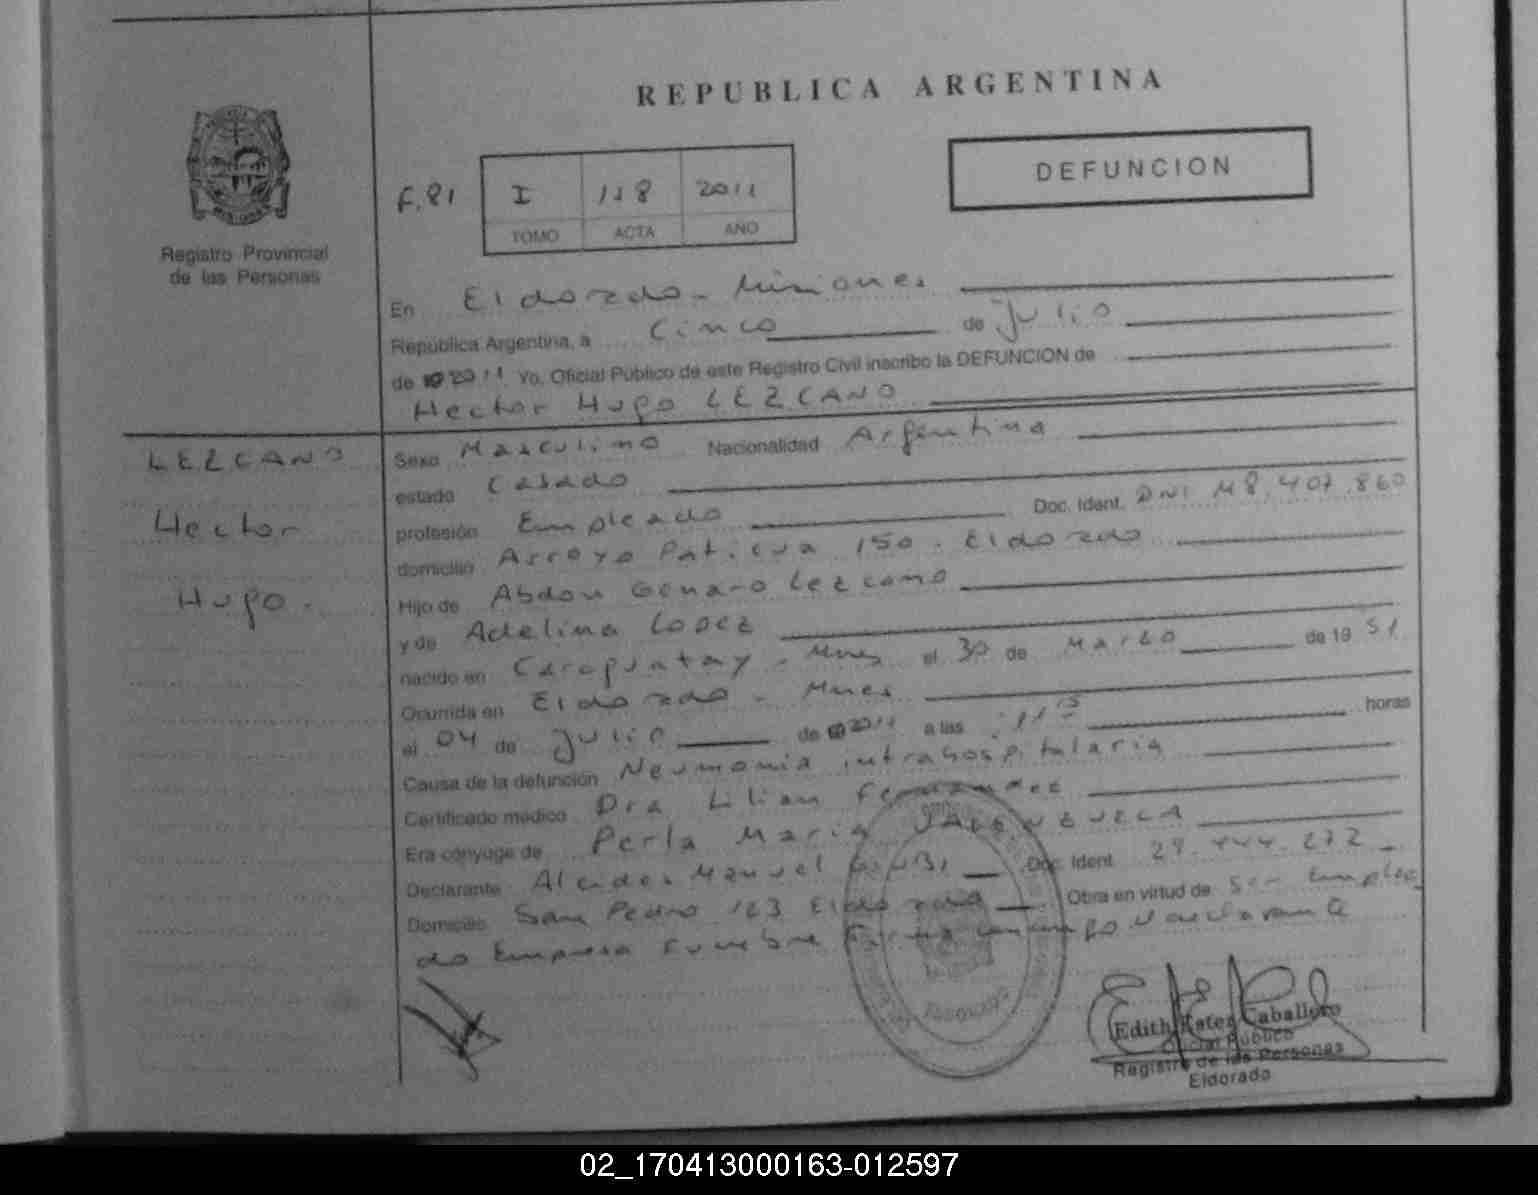 REPUBLICA ARGENTINA
DEFUNCION
F. 81 I 118 2011
TOMO ACTA AÑO
MISIONES
Registro Provincial
de las Personas
En Eldorado - Misiones
República Argentina, a Cinco de Julio
de 2011 Yo, Oficial Público de este Registro Civil inscribo la DEFUNCION de
Hector Hugo LEZCANO
LEZCANO
Hector
Hugo.
Sexo Masculino Nacionalidad Argentina
estado Casado
profesión Empleado Doc. Ident. DNI M8.407.860
domicilio Arroyo 150 - Eldorado
Hijo de Abdon Genaro Lezcano
y de Adelina Lopez
nacido en Caraguatay - Mnes el 30 de Marzo de 19 51
Ocurrida en Eldorado - Mnes
el 04 de Julio de 2011 a las horas
Causa de la defunción Neumonia intrahospitalaria
Certificado médico Dra Lilian Fernandez
Era cónyuge de Perla Maria VALENZUELA
Declarante Manuel Doc. Ident. 29.444.272
Domicilio San Pedro 123 Eldorado Obra en virtud de Ser Emplea
do Empresa Funebre Firma conmigo el declarante
ELDORADO
Edith Ester Caballero
Oficial Público
Registro de las Personas
Eldorado
02_170413000163-012597